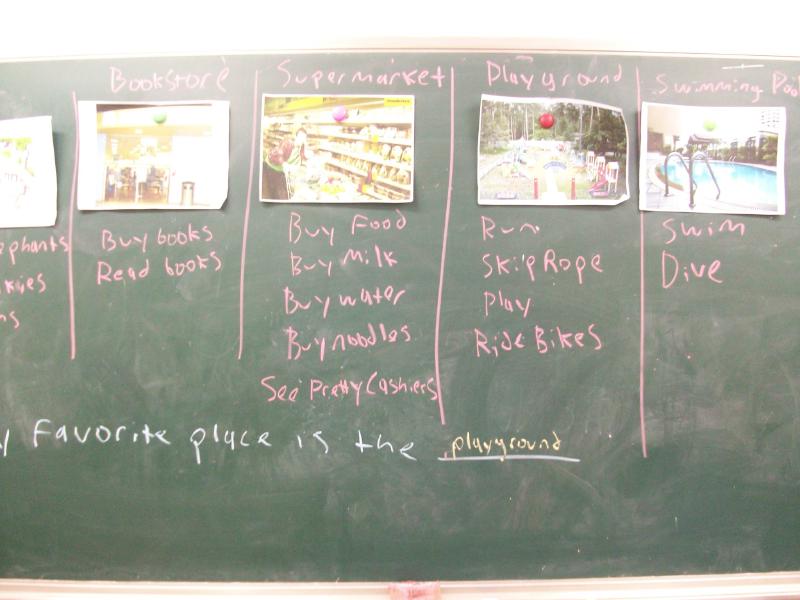 Bookstore
Buy books
Read books
Supermarket
Buy Food
Buy Milk
Buy water
Buy noodles
See Pretty Cashiers
Playground
Run
Skip Rope
Play
Ride Bikes
Swimming Pool
Swim
Dive
Favorite place is the playground